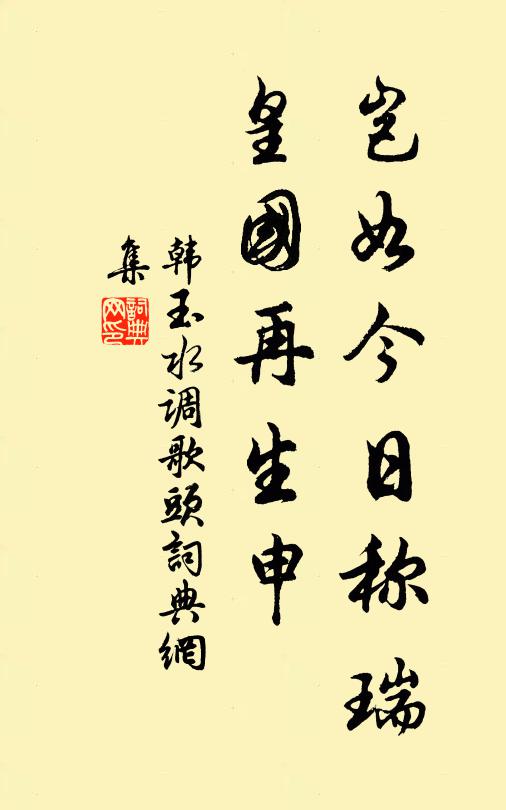 岂如今日称瑞
皇國再生申
韩玉水调歌頭詞典網
集
詞典
网印